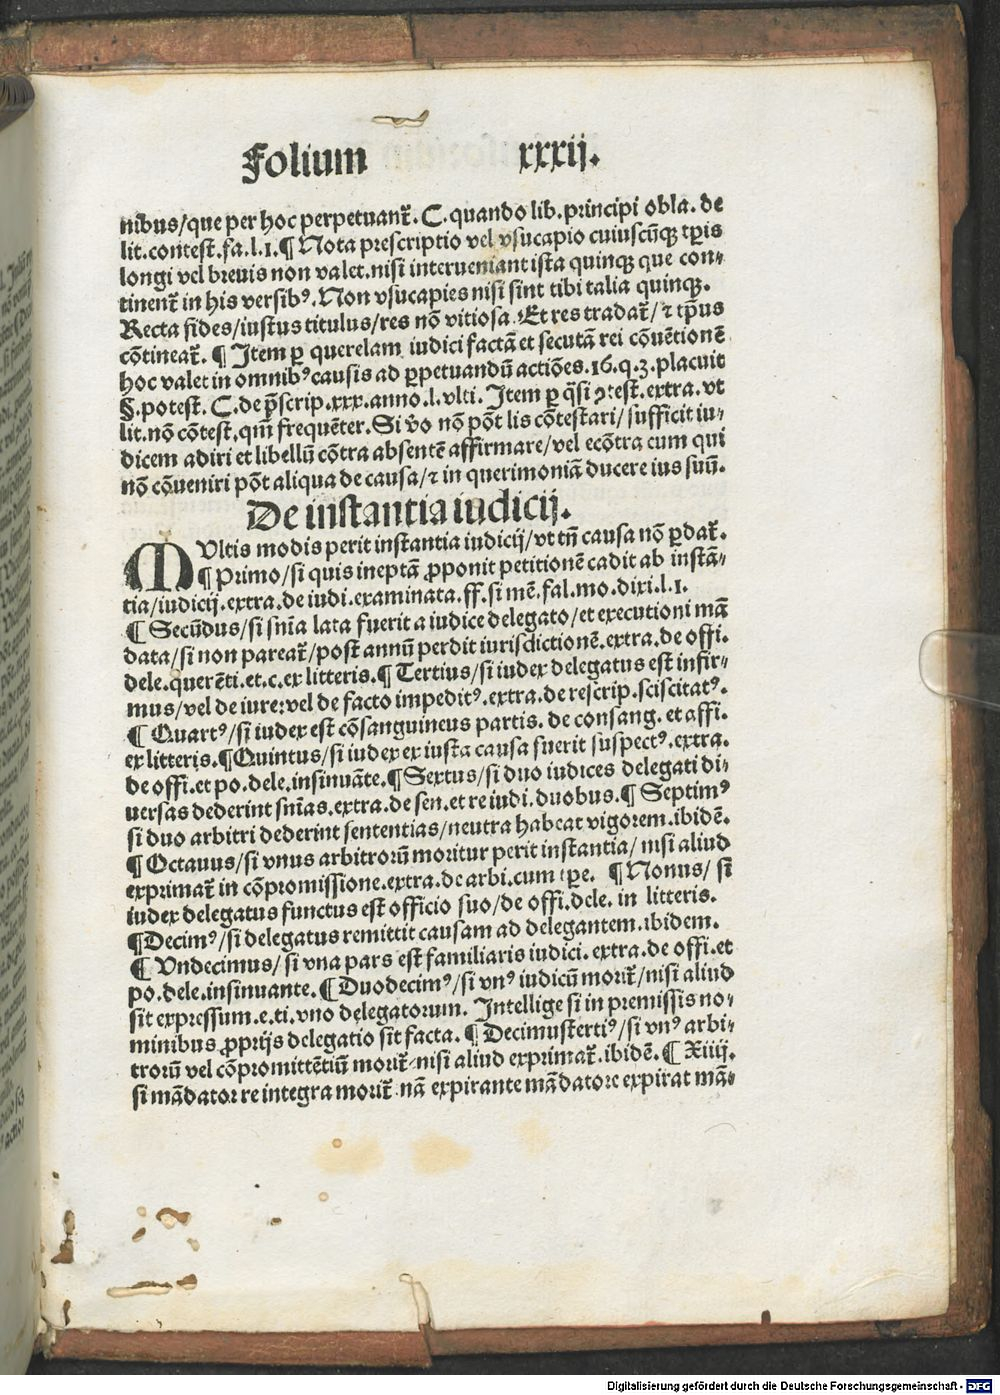 Folium xxxij.
nibus/que per hoc perpetuant᷑. C. quando lib. principi obla. de
lit. contest̄. fa. l. 1. ¶ Nota prescriptio vel vsucapio cuiuscūqꝫ tꝑis
longi vel breuis non valet. nisi interueniant ista quinqꝫ que con-
tinent᷑ in his versibꝰ. Non vsucapies nisi sint tibi talia quinqꝫ.
Recta fides/iustus titulus/res nō vitiosa. Et res tradat᷑/⁊ tp̄us
cōtineat᷑. ¶ Item ꝑ querelam iudici factā et secutā rei cōuētionē
hoc valet in omnibꝰ causis ad ꝑpetuandū actiōes. 16. q. 3. placuit
§. potest. C. de p̄scrip. xxx. anno. l. vlti. Item ꝑ q̄si ꝯtest̄. extra. vt
lit. nō cōtest̄. qm̄ frequēter. Si v̄o nō pōt lis cōtestari/sufficit iu-
dicem adiri et libellū cōtra absentē affirmare/vel ecōtra cum qui
nō cōueniri pōt aliqua de causa/⁊ in querimoniā ducere ius suū.
De instantia iudicij.
MUltis modis perit instantia iudicij/vt tn̄ causa nō ꝑdat᷑.
¶ Primo/si quis ineptā ꝓponit petitionē cadit ab instā-
tia/iudicij. extra. de iudi. examinata. ff. si mē. fal. mo. dixi. l. 1.
¶ Secūdus/si sn̄ia lata fuerit a iudice delegato/et executioni mā
data/si non pareat᷑/post annū perdit iurisdictionē. extra. de offi.
dele. querēti. et. c. ex litteris. ¶ Tertius/si iudex delegatus est infir-
mus/vel de iure: vel de facto impeditꝰ. extra. de rescrip. sciscitatꝰ.
¶ Quartꝰ/si iudex est cōsanguineus partis. de consang. et affi.
ex litteris. ¶ Quintus/si iudex ex iusta causa fuerit suspectꝰ. extra.
de offi. et po. dele. insinuāte. ¶ Sextus/si duo iudices delegati di-
uersas dederint sn̄ias. extra. de sen. et re iudi. duobus. ¶ Septimꝰ
si duo arbitri dederint sententias/neutra habeat vigorem. ibidē.
¶ Octauus/si vnus arbitrorū moritur perit instantia/nisi aliud
exprimat᷑ in cōpromissione. extra. de arbi. cum tꝑe. ¶ Nonus/ si
iudex delegatus functus est officio suo/de offi. dele. in litteris.
¶ Decimꝰ/si delegatus remittit causam ad delegantem. ibidem.
¶ Vndecimus/ si vna pars est familiaris iudici. extra. de offi. et
po. dele. insinuante. ¶ Duodecimꝰ/si vnꝰ iudicū morit᷑/nisi aliud
sit expressum. e. ti. vno delegatorum. Intellige si in premissis no-
minibus ꝓprijs delegatio sit facta. ¶ Decimustertiꝰ/si vnꝰ arbi-
trorū vel cōpromittētiū morit᷑ nisi aliud exprimat᷑. ibidē. ¶ Xiiij.
si mādator re integra morit᷑ nā expirante mādatore expirat mā-
Digitalisierung gefördert durch die Deutsche Forschungsgemeinschaft - DFG